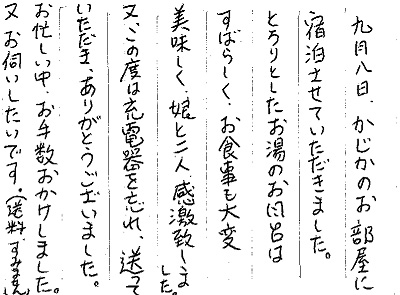 九月八日、かじかのお部屋に
宿泊させていただきました。
とろりとしたお湯のお風呂は
すばらしく、お食事も大変
美味しく、娘と二人感激致しました。
又、この度は充電器を忘れ、送って
いただき、ありがとうございました。
お忙しい中、お手数おかけしました。
又お伺いしたいです。(送料、すみません)